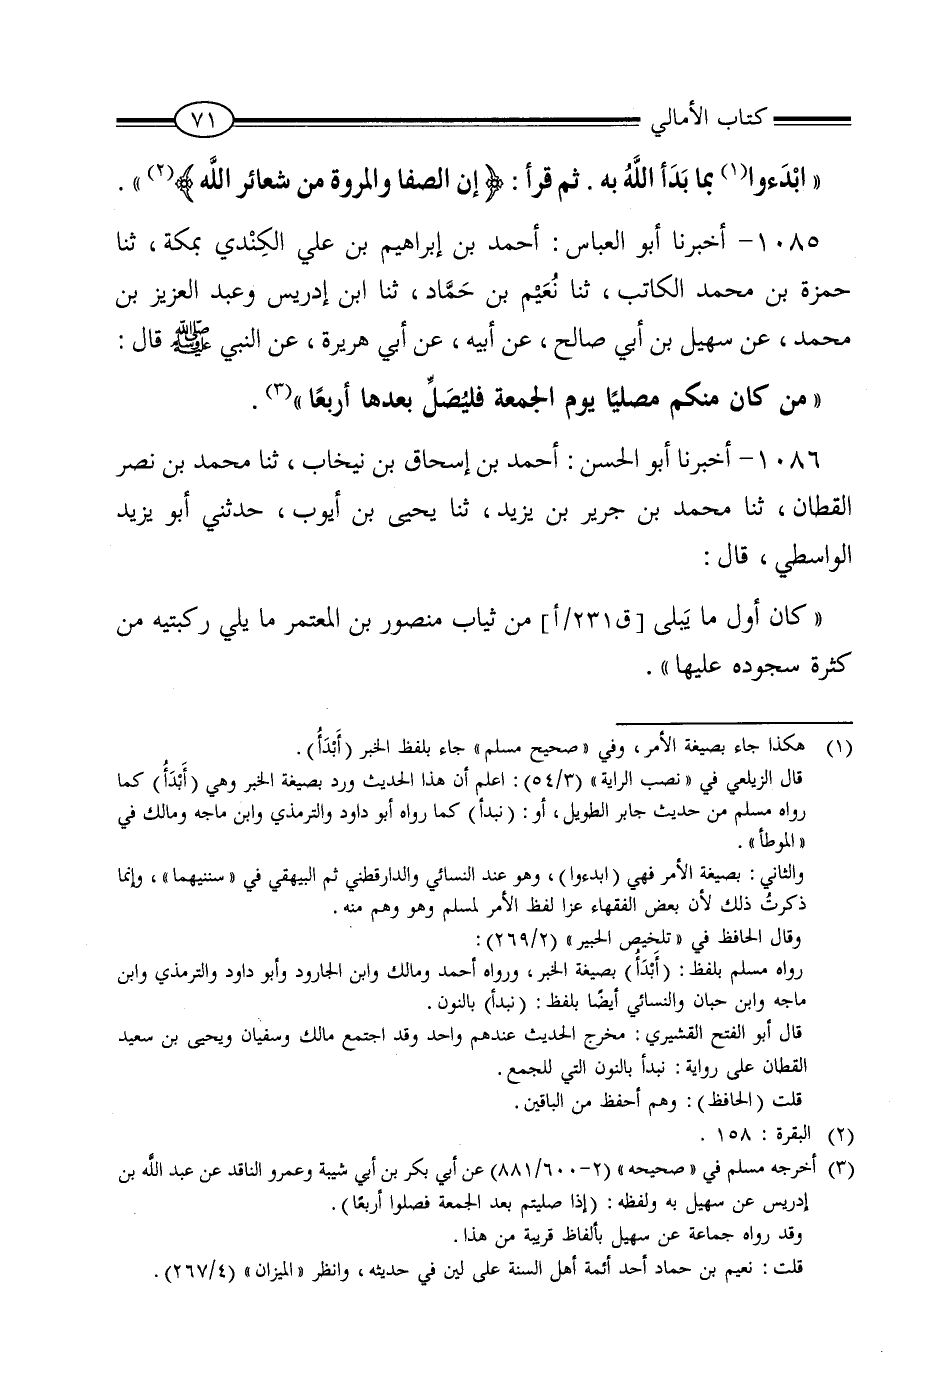 كتاب الأمالي ٧١
« ابْدَءوا(١) بما بَدَأ اللَّهُ به . ثم قرأ : ﴿ إن الصفا والمروة من شعائر اللَّه ﴾(٢) » .
١٠٨٥- أخبرنا أبو العباس : أحمد بن إبراهيم بن علي الكِنْدي بمكة ، ثنا
حمزة بن محمد الكاتب ، ثنا نُعَيْم بن حَمَّاد ، ثنا ابن إدريس وعبد العزيز بن
محمد ، عن سهيل بن أبي صالح ، عن أبيه ، عن أبي هريرة ، عن النبي ﷺ قال :
« من كان منكم مصليًا يوم الجمعة فليُصَلِّ بعدها أربعًا »(٣) .
١٠٨٦- أخبرنا أبو الحسن : أحمد بن إسحاق بن نيخاب ، ثنا محمد بن نصر
القطان ، ثنا محمد بن جرير بن يزيد ، ثنا يحيى بن أيوب ، حدثني أبو يزيد
الواسطي ، قال :
« كان أول ما يَبلى [ق٢٣١/أ] من ثياب منصور بن المعتمر ما يلي ركبتيه من
كثرة سجوده عليها » .
(١) هكذا جاء بصيغة الأمر ، وفي « صحيح مسلم » جاء بلفظ الخبر (أَبْدَأُ) .
قال الزيلعي في « نصب الراية » (٥٤/٣) : اعلم أن هذا الحديث ورد بصيغة الخبر وهي (أَبْدَأُ) كما
رواه مسلم من حديث جابر الطويل ، أو : (نبدأ) كما رواه أبو داود والترمذي وابن ماجه ومالك في
« الموطأ » .
والثاني : بصيغة الأمر فهي (ابدءوا) ، وهو عند النسائي والدارقطني ثم البيهقي في « سننيهما » ، وإنما
ذكرتُ ذلك لأن بعض الفقهاء عزا لفظ الأمر لمسلم وهو وهم منه .
وقال الحافظ في « تلخيص الحبير » (٢٦٩/٢) :
رواه مسلم بلفظ : (أَبْدَأُ) بصيغة الخبر ، ورواه أحمد ومالك وابن الجارود وأبو داود والترمذي وابن
ماجه وابن حبان والنسائي أيضًا بلفظ : (نبدأ) بالنون .
قال أبو الفتح القشيري : مخرج الحديث عندهم واحد وقد اجتمع مالك وسفيان ويحيى بن سعيد
القطان على رواية : نبدأ بالنون التي للجمع .
قلت (الحافظ) : وهم أحفظ من الباقين .
(٢) البقرة : ١٥٨ .
(٣) أخرجه مسلم في « صحيحه » (٢-٨٨١/٦٠٠) عن أبي بكر بن أبي شيبة وعمرو الناقد عن عبد اللَّه بن
إدريس عن سهيل به ولفظه : (إذا صليتم بعد الجمعة فصلوا أربعًا) .
وقد رواه جماعة عن سهيل بألفاظ قريبة من هذا .
قلت : نعيم بن حماد أحد أئمة أهل السنة على لين في حديثه ، وانظر « الميزان » (٢٦٧/٤) .